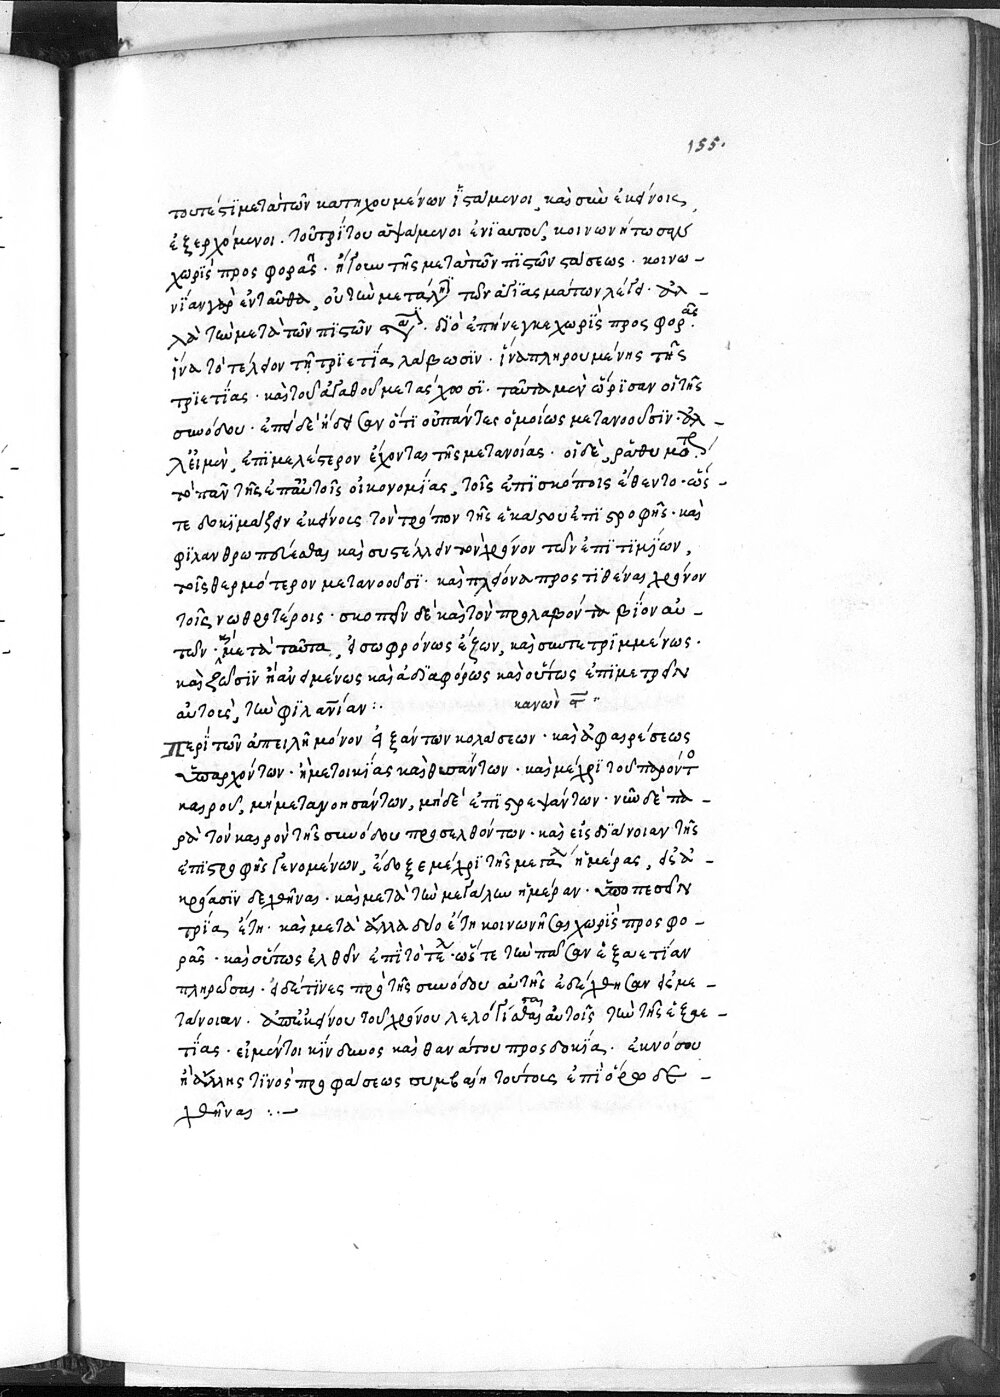 155.
τουτέστι μετὰ τῶν κατηχουμένων ἱστάμενοι, καὶ σὺν ἐκείνοις
ἐξερχόμενοι. τοῦ τρίτου ἁψάμενοι ἐνιαυτοῦ, κοινωνήτωσαν
χωρὶς προσφορᾶς. ἤγουν τῆς μετὰ τῶν πιστῶν στάσεως. κοινω-
νίαν γὰρ ἐνταῦθα, οὐ τὴν μετάλη τῶν ἁγίας μάτων λέγει. ἀλ-
λὰ τὴν μετὰ τῶν πιστῶν. διὸ ἐπήνεγκε χωρὶς προσφορᾶς.
ἵνα τὸ τέλειον τῇ τριετίᾳ λάβωσιν. ἵνα πληρουμένης τῆς
τριετίας. καὶ τοῦ ἀγαθοῦ μετάσχωσι. ταῦτα μὲν ὥρισαν οἱ τῆς
συνόδου. ἐπεὶ δὲ ᾔδεισαν ὅτι οὐ πάντες ὁμοίως μετανοοῦσιν. ἀλ-
λ' εἰ μὲν, ἐπιμελέστερον ἔχονται τῆς μετανοίας. οἱ δὲ, ῥαθυμότερον
τὸ πᾶν τῆς ἐπ' αὐτοῖς οἰκονομίας, τοῖς ἐπισκόποις ἔθεντο. ὥσ-
τε δοκιμάζειν ἐκείνοις τὸν τρόπον τῆς ἑκάστου ἐπιστροφῆς. καὶ
φιλανθρωπεύεσθαι καὶ συστέλλειν τὸν χρόνον τῶν ἐπιτιμίων,
τοῖς θερμότερον μετανοοῦσι. καὶ πλείονα προστιθέναι χρόνον
τοῖς νωθροτέροις. σκοπεῖν δὲ καὶ τὸν προλαβόντα βίον αὐ-
τῶν. καὶ μετὰ ταῦτα, εἰ σωφρόνως ἔζων, καὶ συντετριμμένως.
καὶ ζῶσιν ἢ ἀνειμένως καὶ ἀδιαφόρως καὶ οὕτως ἐπιμετρεῖν
αὐτοῖς, τὴν φιλανίαν :· κανὼν ς̄
Περὶ τῶν ἀπειλῇ μόνον εἰξάντων κολάσεων. καὶ ἀφαιρέσεως
ὑπαρχόντων. ἢ μετοικίας καὶ θυσάντων. καὶ μέχρι τοῦ παρόντος
καιροῦ, μὴ μετανοησάντων, μηδὲ ἐπιστρεψάντων. νῦν δὲ πα-
ρὰ τὸν καιρὸν τῆς συνόδου προσελθόντων. καὶ εἰς διάνοιαν τῆς
ἐπιστροφῆς γενομένων, ἔδοξε μέχρι τῆς μεγάλης ἡμέρας, εἰς ἀ-
κρόασιν δεχθῆναι. καὶ μετὰ τὴν μεγάλην ἡμέραν. ὑποπεσεῖν
τρία, ἔτη. καὶ μετὰ ἄλλα δύο ἔτη κοινωνῆσαι χωρὶς προσφο-
ρᾶς. καὶ οὕτως ἐλθεῖν ἐπὶ τὸ τέλ. ὥστε τὴν πᾶσαν ἑξαετίαν
πληρῶσαι. εἰ δέ τινες πρὸ τῆς συνόδου αὐτῆς ἐδέχθησαν εἰς με-
τάνοιαν. ἀπ' ἐκείνου τοῦ χρόνου λελογίσθαι αὐτοῖς τὴν τῆς ἑξαε-
τίας. εἰ μέντοι κίνδυνος καὶ θανάτου προσδοκία. ἐκ νόσου
ἢ ἄλλης τινὸς προφάσεως συμβαίη τούτοις ἐπὶ ὅρῳ δε-
χθῆναι :·—